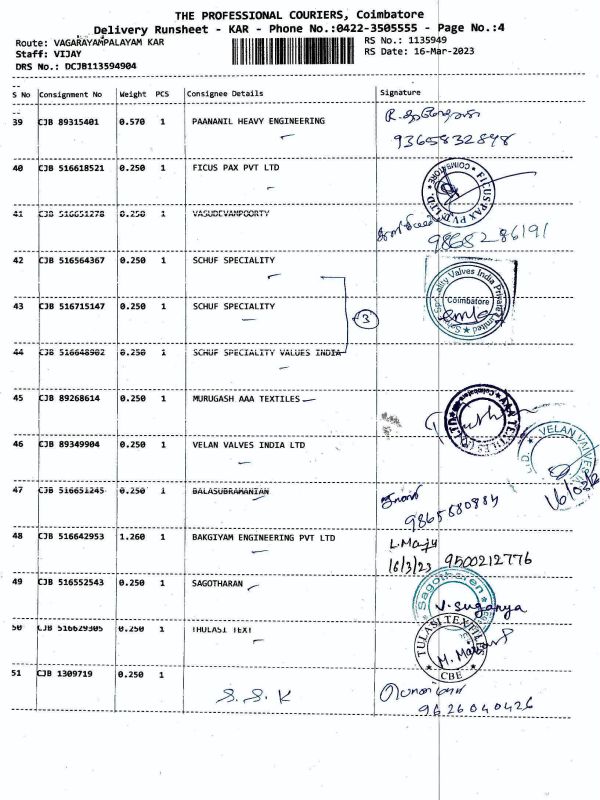 THE PROFESSIONAL COURIERS, Coimbatore
Delivery Runsheet - KAR - Phone No.:0422-3505555 - Page No.:4
Route: VAGARAYAMPALAYAM KAR
RS No.: 1135949
Staff: VIJAY
RS Date: 16-Mar-2023
DRS No.: DCJB113594904
S No Consignment No Weight PCS Consignee Details Signature
39 CJB 89315401 0.570 1 PAANANIL HEAVY ENGINEERING
9365832848
40 CJB 516618521 0.250 1 FICUS PAX PVT LTD
FICUS PAX PVT. LTD. COIMBATORE
41 CJB 516651278 0.250 1 VASUDEVAMPOORTY
9865286191
42 CJB 516564367 0.250 1 SCHUF SPECIALITY
Speciality Valves India Private Limited
Coimbatore
43 CJB 516715147 0.250 1 SCHUF SPECIALITY
3
44 CJB 516648902 0.250 1 SCHUF SPECIALITY VALUES INDIA
45 CJB 89268614 0.250 1 MURUGASH AAA TEXTILES
AAA TEXTILES
46 CJB 89349904 0.250 1 VELAN VALVES INDIA LTD
VELAN VALVES
47 CJB 516651245 0.250 1 BALASUBRAMANIAN
9865680884
48 CJB 516642953 1.260 1 BAKGIYAM ENGINEERING PVT LTD
L.Manju
16/3/23 9500212776
49 CJB 516552543 0.250 1 SAGOTHARAN
Sagotharen
V. Suganya
50 CJB 516629305 0.250 1 THULASI TEXT
TULASI TEXTILES
CBE
51 CJB 1309719 0.250 1
S. S. K
9626040426